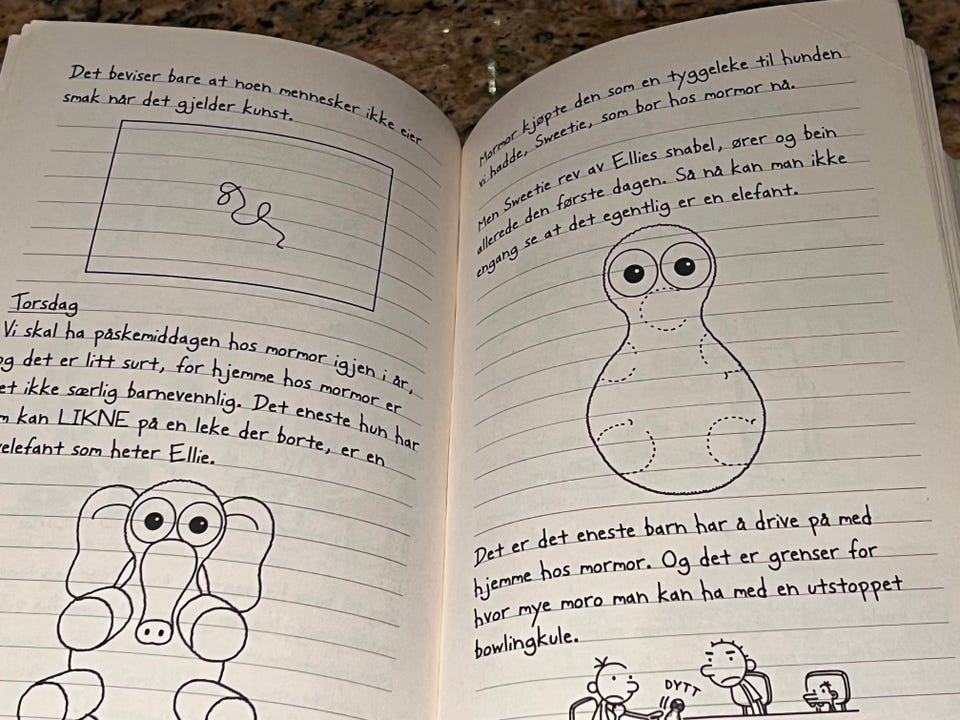 Det beviser bare at noen mennesker ikke eier
smak når det gjelder kunst.
Torsdag
Vi skal ha påskemiddagen hos mormor igjen i år,
og det er litt surt, for hjemme hos mormor er
et ikke særlig barnevennlig. Det eneste hun har
kan LIKNE på en leke der borte, er en
elefant som heter Ellie.
Mormor kjøpte den som en tyggeleke til hunden
vi hadde, Sweetie, som bor hos mormor nå.
Men Sweetie rev av Ellies snabel, ører og bein
allerede den første dagen. Så nå kan man ikke
engang se at det egentlig er en elefant.
Det er det eneste barn har å drive på med
hjemme hos mormor. Og det er grenser for
hvor mye moro man kan ha med en utstoppet
bowlingkule.
DYTT